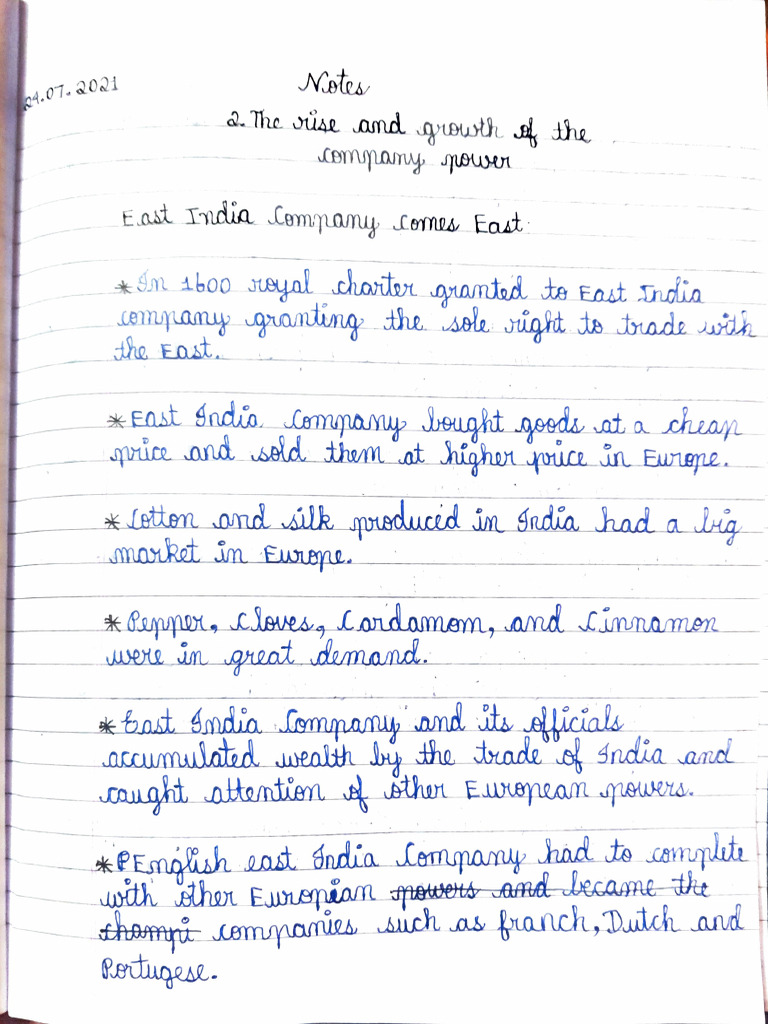 24.07.2021
Notes
2. The rise and growth of the
company power
East India Company comes East:
*In 1600 royal charter granted to East India
company granting the sole right to trade with
the East.
*East India Company bought goods at a cheap
price and sold them at higher price in Europe.
*Cotton and silk produced in India had a big
market in Europe.
*Pepper, Cloves, Cardamom, and Cinnamon
were in great demand.
*East India Company and its officials
accumulated wealth by the trade of India and
caught attention of other European powers.
*English east India Company had to complete
with other European powers and became the
champi companies such as franch, Dutch and
Portugese.